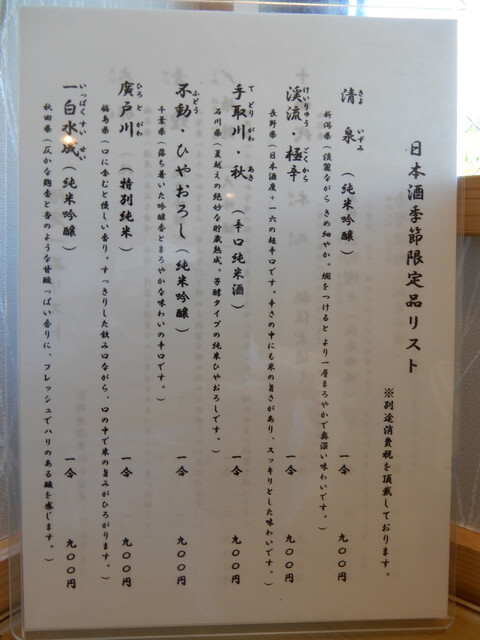 日本酒季節限定品リスト
※別途消費税を頂戴しております。
清泉(純米吟醸) 一合 九〇〇円
きよ いずみ
新潟県(淡麗ながらきめ細やか。燗をつけるとより一層まろやかで奥深い味わいです。)
渓流・極辛 一合 九〇〇円
けいりゅう ごくから
長野県(日本酒度+一六の超辛口です。辛さの中にも米の旨さがあり、スッキリとした味わいです。)
手取川・秋(辛口純米酒) 一合 九〇〇円
てどりがわ あき
石川県(夏越えの絶妙な貯蔵熟成。芳醇タイプの純米ひやおろしです。)
不動・ひやおろし(純米吟醸) 一合 九〇〇円
ふどう
千葉県(落ち着いた吟醸香とまろやかな味わいの辛口です。)
廣戸川(特別純米) 一合 九〇〇円
ひろと がわ
福島県(口に含むと優しい香り。すっきりした飲み口ながら、口の中で米の旨みがひろがります。)
一白水成(純米吟醸) 一合 九〇〇円
いっぱくすいせい
秋田県(仄かな麹香と杏のような甘酸っぱい香りに、フレッシュでハリのある酸を感じます。)